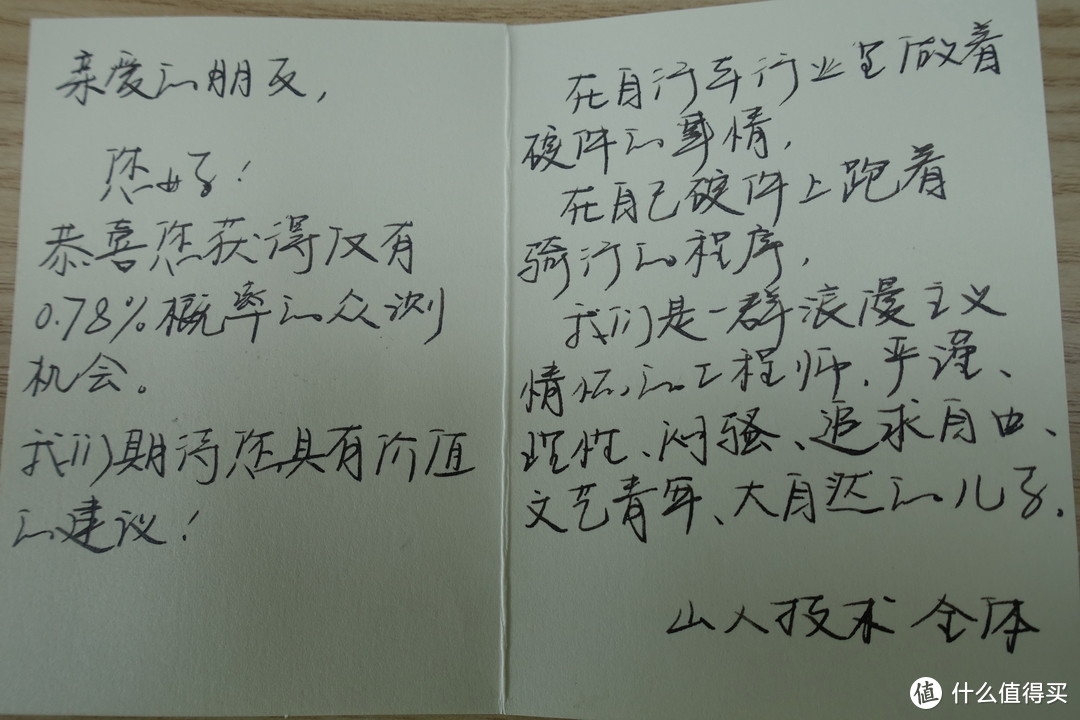 亲爱的朋友,
您好!
恭喜您获得仅有
0.78%概率的众测
机会。
我们期待您具有价值
的建议!
在自行车行业里做着
硬件的事情,
在自己硬件上跑着
骑行的程序,
我们是一群浪漫主义
情怀的工程师.严谨、
理性、闷骚、追求自由、
文艺青年、大自然的儿子.
山人技术 全体
值 什么值得买